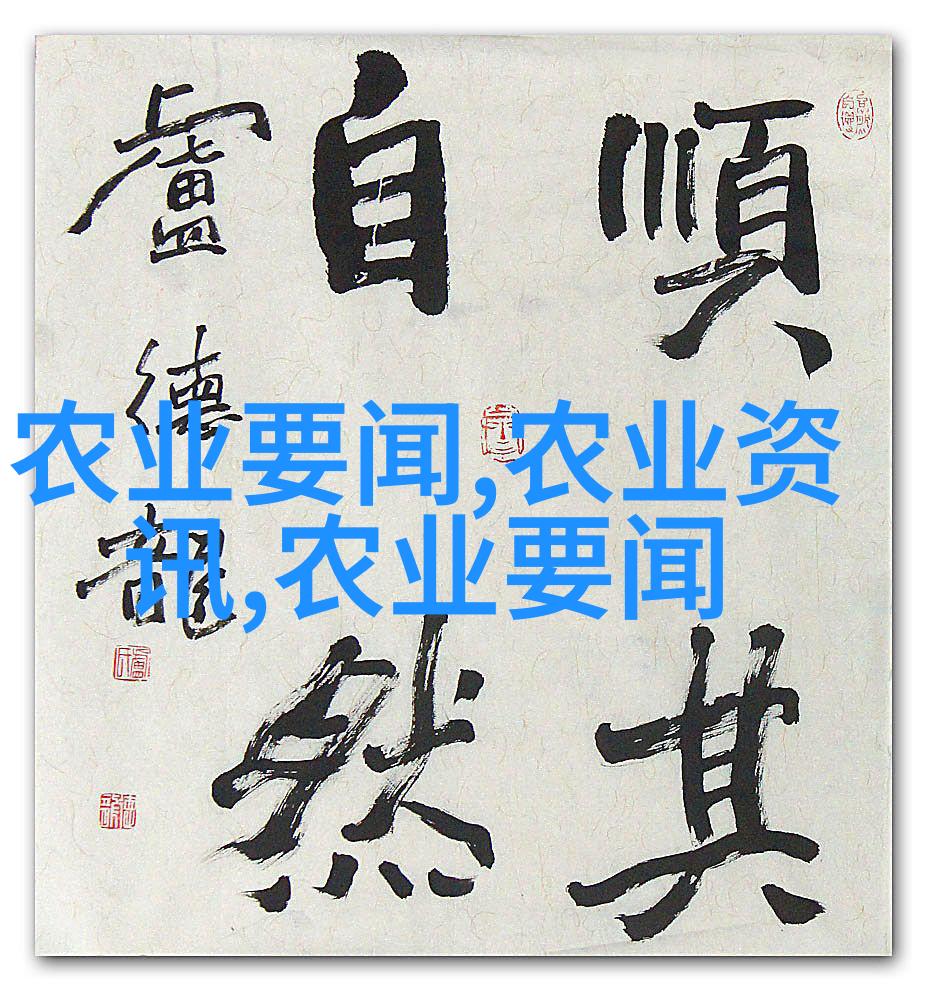 順其
自然
盧德龍
农业要闻,农业资
讯,农业要闻